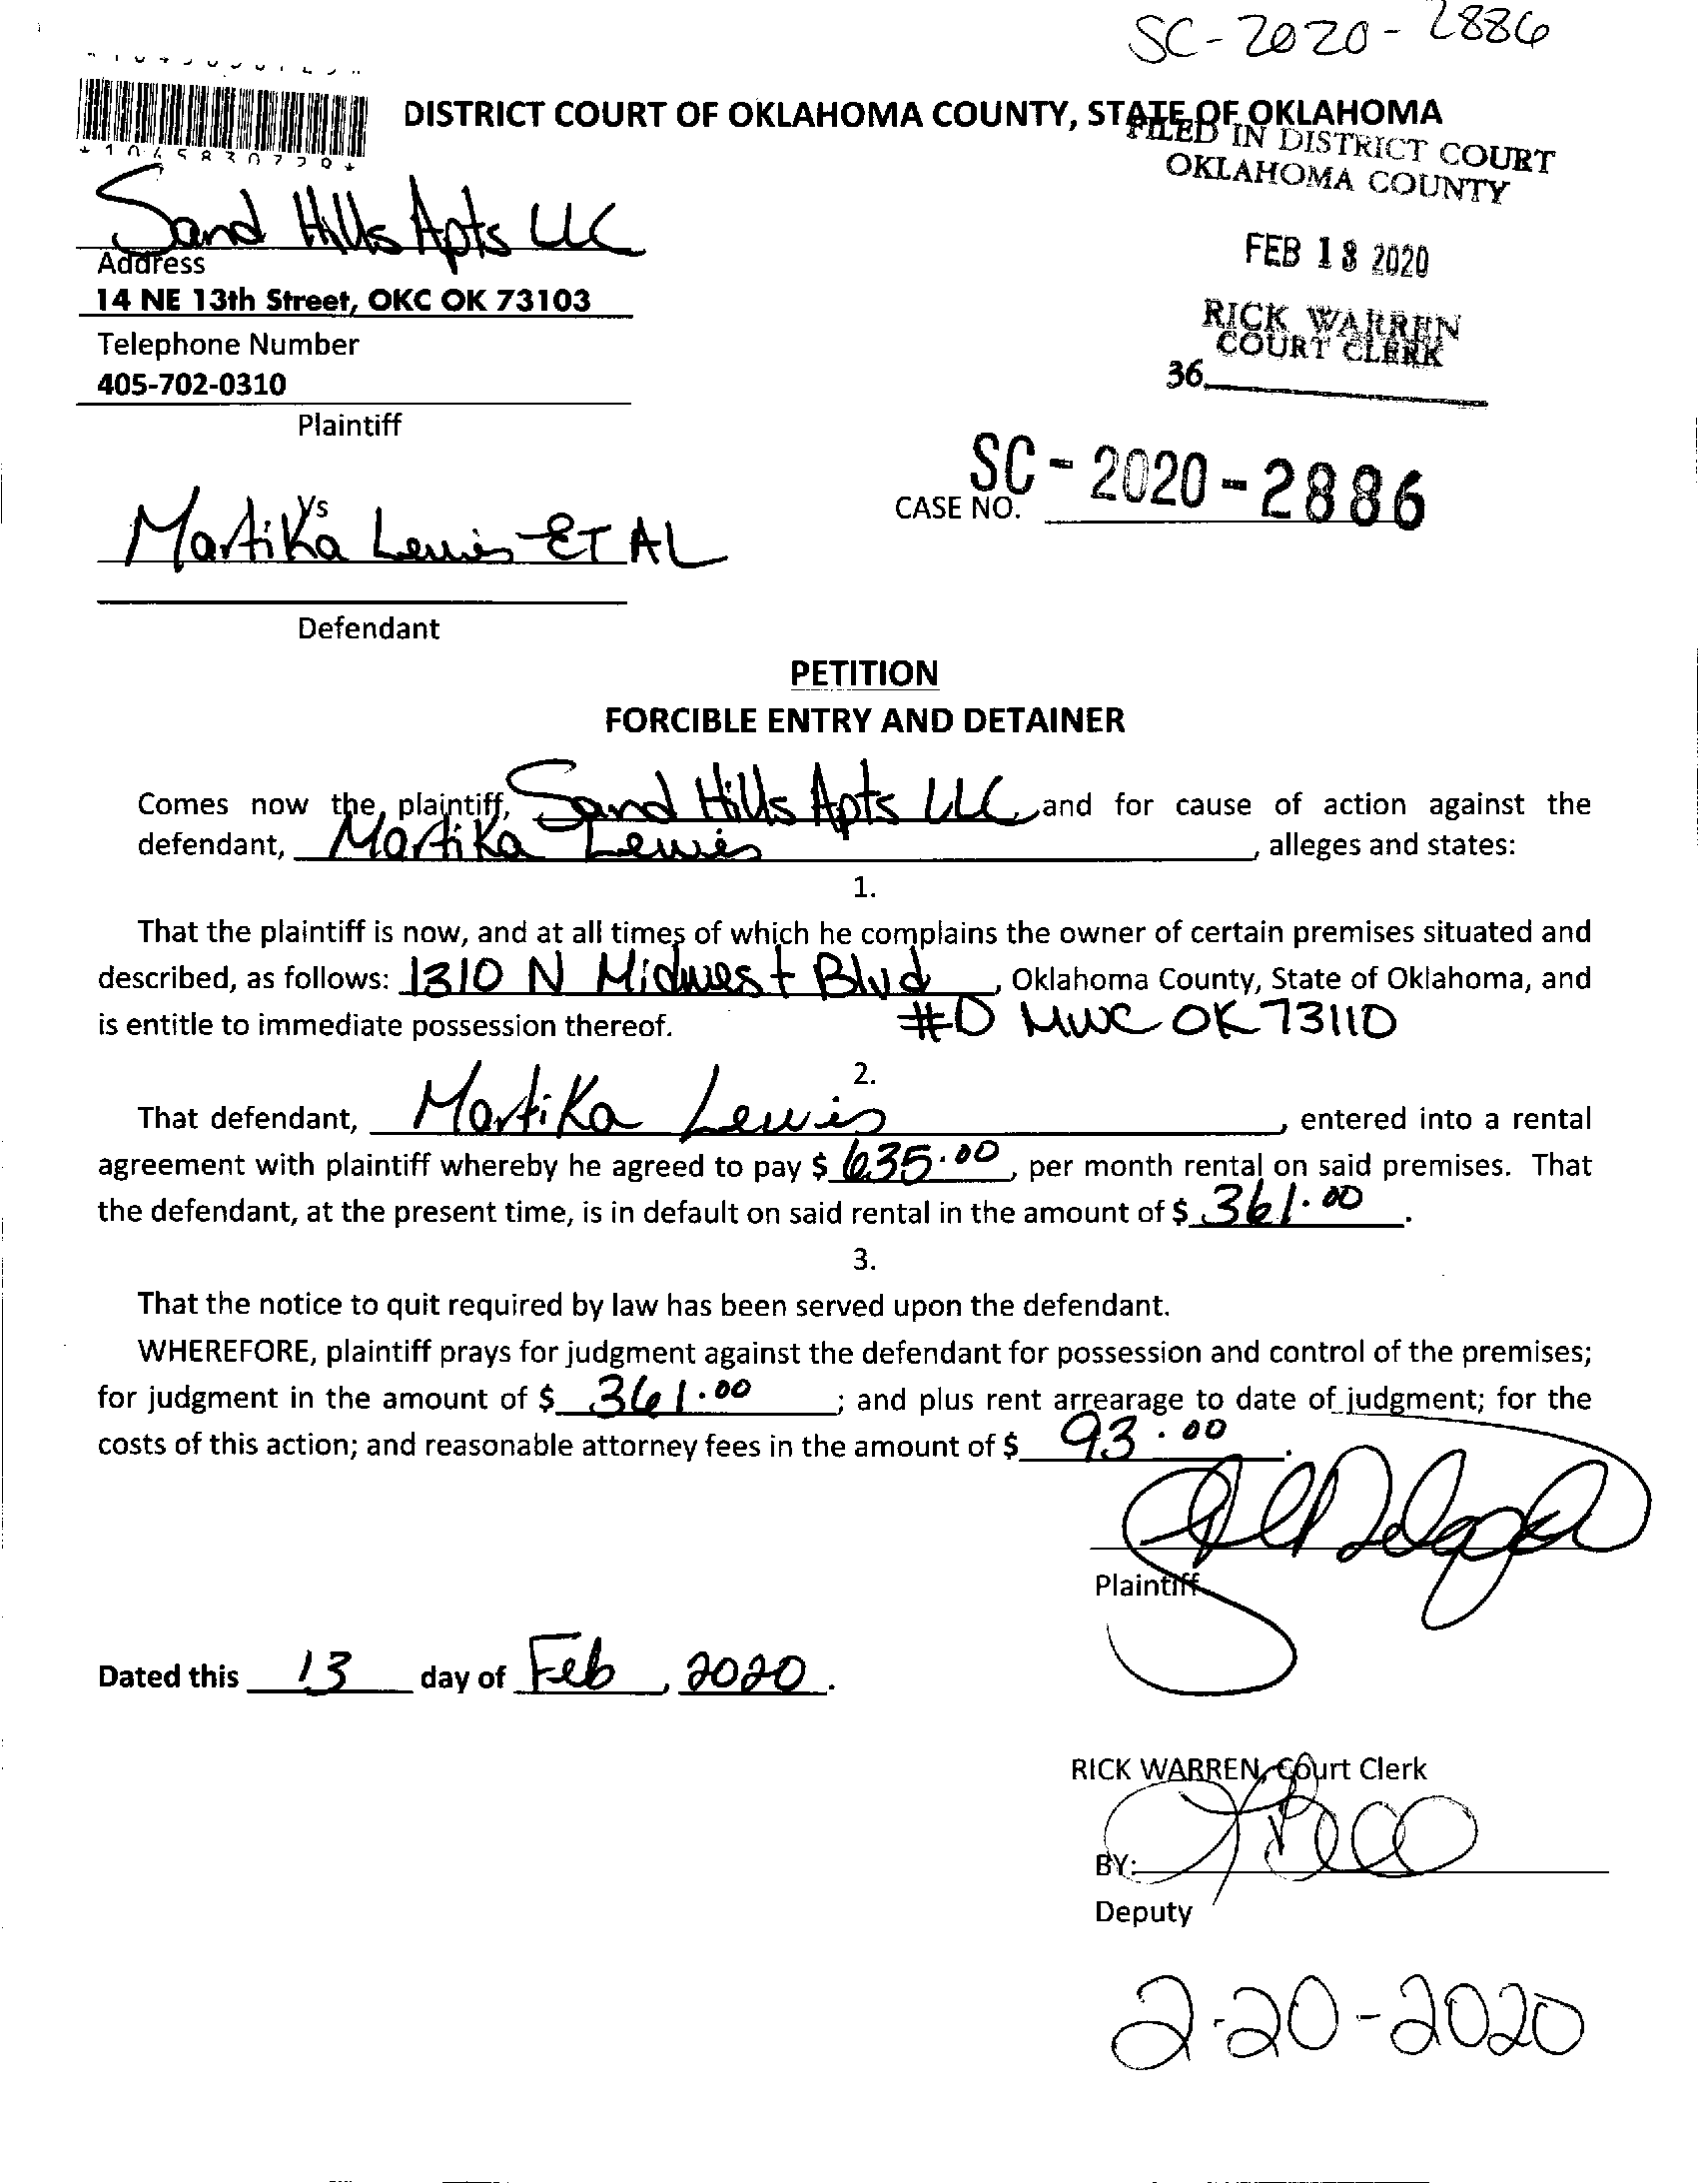 SC-2020-2886
DISTRICT COURT OF OKLAHOMA COUNTY, STATE OF OKLAHOMA
FILED IN DISTRICT COURT
OKLAHOMA COUNTY
*1045830729*
Sand Hills Apts LLC
Address
14 NE 13th Street, OKC OK 73103
FEB 18 2020
RICK WARREN
COURT CLERK
36
Telephone Number
405-702-0310
Plaintiff
Vs
CASE NO. SC-2020-2886
Martika Lewis ET AL
Defendant
PETITION
FORCIBLE ENTRY AND DETAINER
Comes now the plaintiff, Sand Hills Apts LLC, and for cause of action against the
defendant, Martika Lewis, alleges and states:
1.
That the plaintiff is now, and at all times of which he complains the owner of certain premises situated and
described, as follows: 1310 N Midwest Blvd, Oklahoma County, State of Oklahoma, and
is entitle to immediate possession thereof. #D MWC OK 73110
2.
That defendant, Martika Lewis, entered into a rental
agreement with plaintiff whereby he agreed to pay $ 635.00, per month rental on said premises. That
the defendant, at the present time, is in default on said rental in the amount of $ 361.00.
3.
That the notice to quit required by law has been served upon the defendant.
WHEREFORE, plaintiff prays for judgment against the defendant for possession and control of the premises;
for judgment in the amount of $ 361.00; and plus rent arrearage to date of judgment; for the
costs of this action; and reasonable attorney fees in the amount of $ 93.00.
Plaintiff
Dated this 13 day of Feb, 2020.
RICK WARREN, Court Clerk
BY:
Deputy
2-20-2020